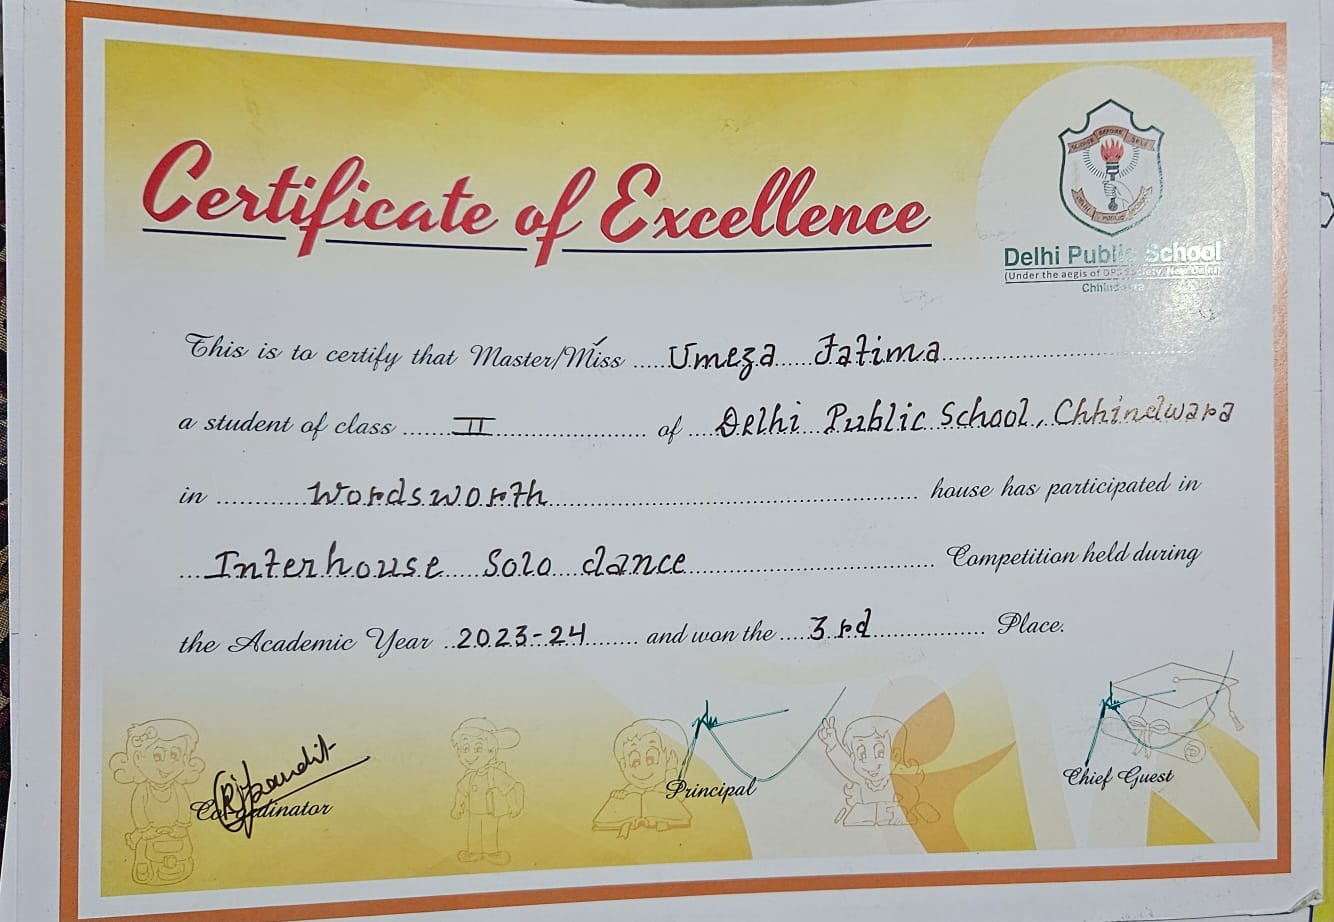 Certificate of Excellence
SERVICE BEFORE SELF
DELHI PUBLIC SCHOOL
Delhi Public School
(Under the aegis of DPS Society, New Delhi)
Chhindwara
This is to certify that Master/Miss ..... Umeza ..... Fatima ..........
a student of class ..... II ..... of ... Delhi Public School, Chhindwara
in .......... Wordsworth .......... house has participated in
... Interhouse Solo dance .......... Competition held during
the Academic Year .. 2023-24 ....... and won the .... 3rd .......... Place.
Co-ordinator
Principal
Chief Guest